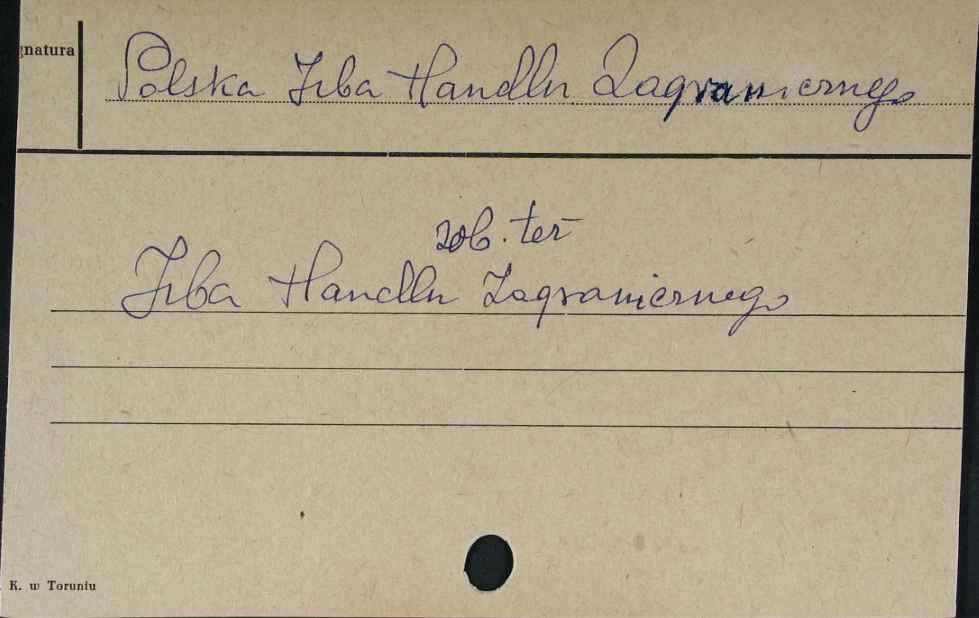 gnatura
Polska Izba Handlu Zagranicznego
zob. też
Izba Handlu Zagranicznego
K. w Toruniu